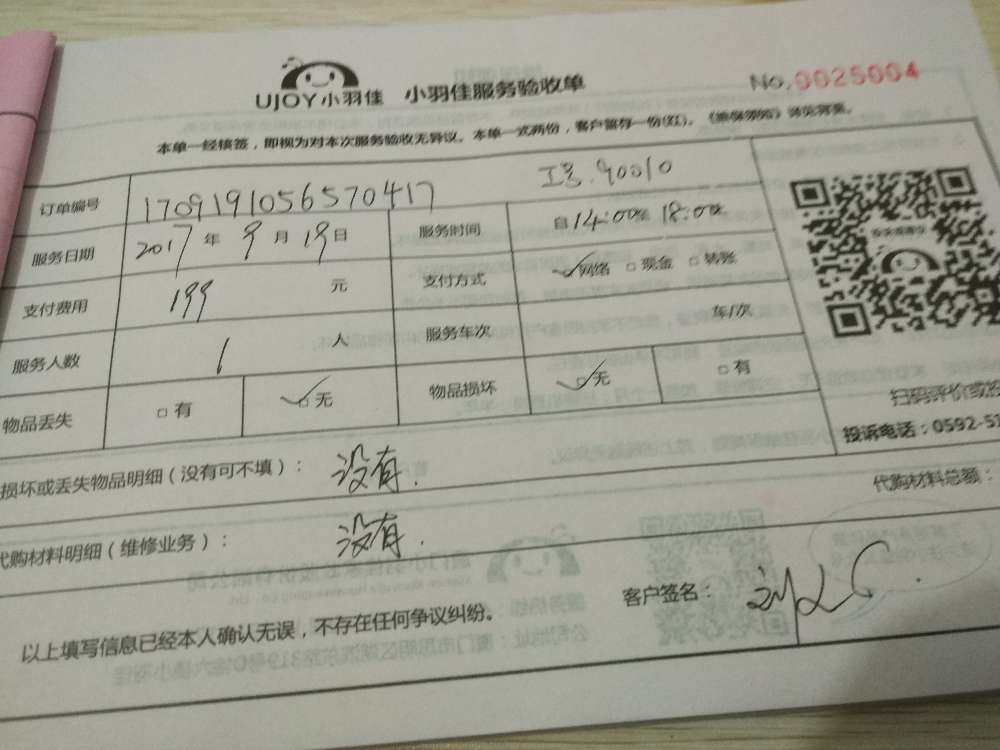 UJOY小羽佳 小羽佳服务验收单 No.0025004
本单一经填签，即视为对本次服务验收无异议。本单一式两份，客户留存一份(红)。
订单编号 1709191056570417 工号.90010
服务日期 2017年9月19日 服务时间 自14:00至18:00
支付费用 199 元 支付方式 网络 □ 现金 □ 转账
服务人数 1 人 服务车次 车/次
物品丢失 □ 有 □ 无 物品损坏 □ 无 □ 有
扫码评价或
投诉电话：0592-5
损坏或丢失物品明细（没有可不填）： 没有.
代购材料总额：
代购材料明细（维修业务）： 没有.
以上填写信息已经本人确认无误，不存在任何争议纠纷。 客户签名：